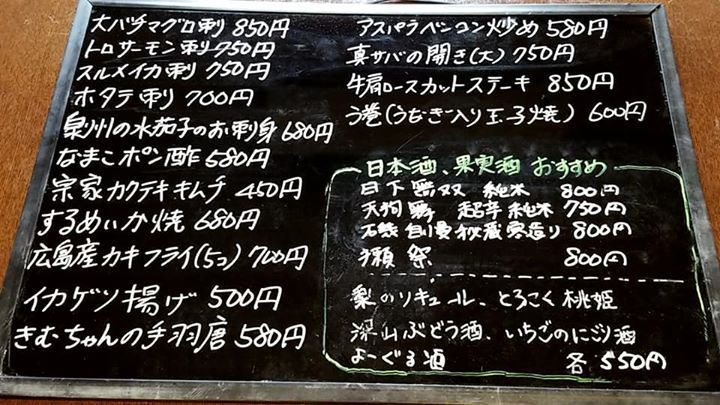 大バチマグロ刺 850円
トロサーモン刺 750円
スルメイカ刺 750円
ホタテ刺 700円
泉州の水茄子のお刺身 680円
なまこポン酢 580円
宗家カクテキキムチ 450円
するめいか焼 680円
広島産カキフライ(5コ) 700円
イカゲソ揚げ 500円
きむちゃんの手羽唐 580円
アスパラベーコン炒め 580円
真サバの開き(大) 750円
牛肩ロースカットステーキ 850円
う巻(うなぎ入り玉子焼) 600円
日本酒、果実酒 おすすめ
日下無双 純米 800円
天狗舞 超辛純米 750円
磯自慢 秘蔵寒造り 800円
獺祭 800円
梨のリキュール、とろこく桃姫
深山ぶどう酒、いちごのにごり酒
よーぐる酒 各550円